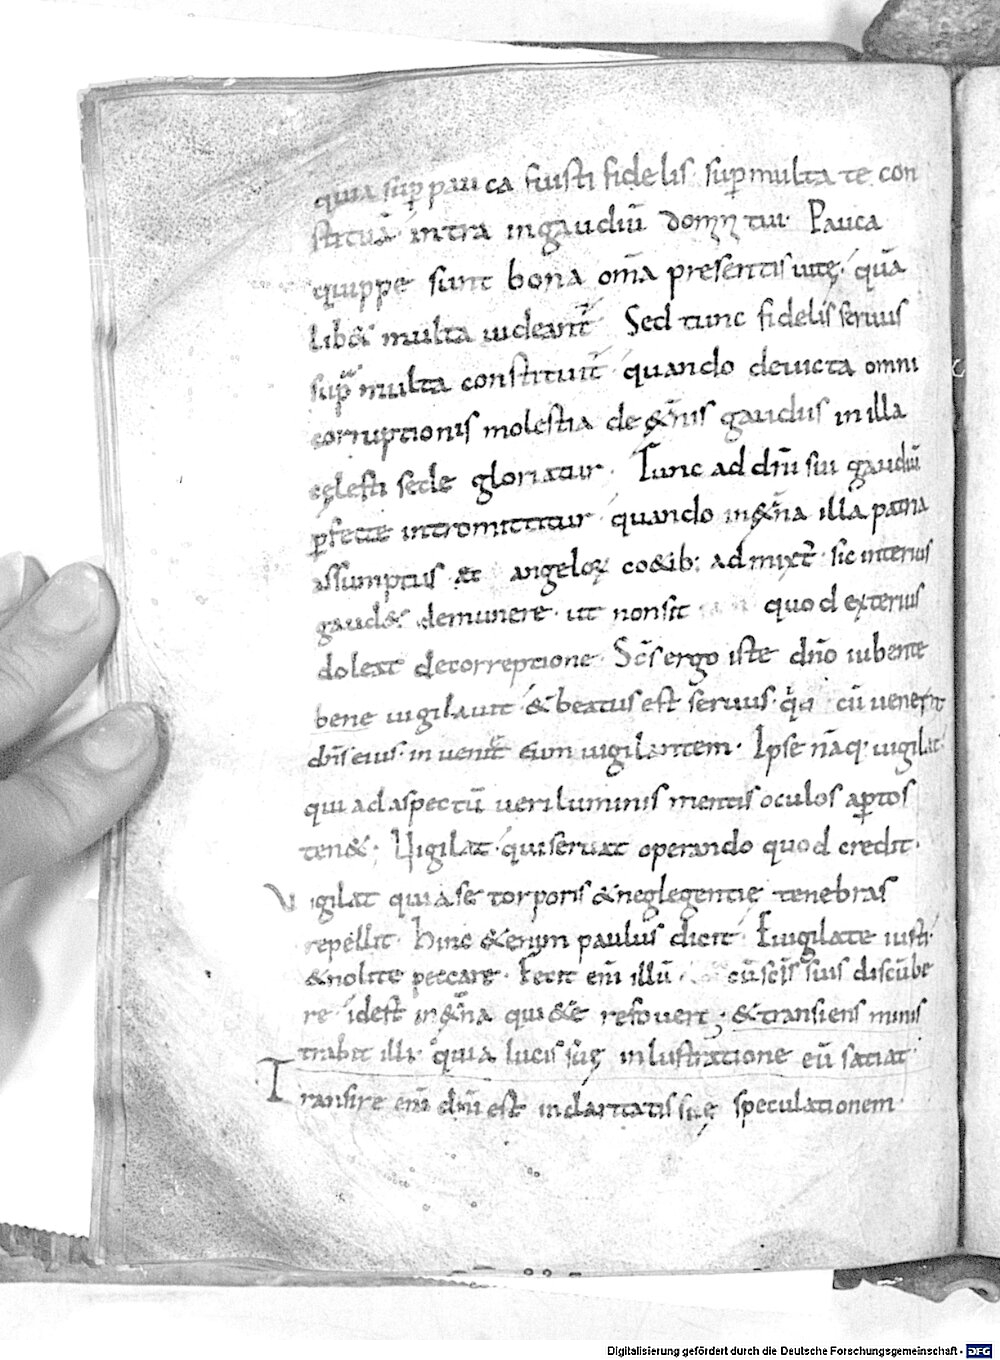 quia sup̄ pauca fuisti fidelis sup̄ multa te con
stituā· intra in gaudiū domini tui· Pauca
quippe sunt bona om̄a presentis uitę· quā
lib& multa uideant̄· Sed tunc fidelis seruus
sup̄ multa constituit̄ quando deuicta omni
corruptionis molestia de &ṇ̄is gaudiis in illa
cęlesti sede gloriatur· Tunc ad dn̄i sui gaudiū
p̄fecte intromittitur· quando in &n̄a illa patria
assumptus et angeloꝝ coetib; admixt̄· sic interius
gaud& de munere· ut non sit quod exterius
doleat de correptione· Sc̄s ergo iste dn̄o iubente
bene uigilauit & beatus est seruus· q̄i cū uenerit
dn̄s eius· inuenit̄ eum uigilantem· Ipse nāq· uigilat·
qui ad aspectū ueri luminis mentis oculos ap̄tos
ten&· Uigilat· qui seruat operando quod credit·
Uigilat qui a se torporis & neglegentię tenebras
repellit· Hinc & enim paulus dicit· Euigilate iusti·
& nolite peccare· Fecit em̄ illū cū sc̄is suis discūbe
re· id est in &n̄a qui&e refouert; & transiens minis
trabit illi· quia lucis suę inlustratione eū satiat·
Transire em̄ dn̄i est in claritatis suę speculationem·
Digitalisierung gefördert durch die Deutsche Forschungsgemeinschaft - DFG